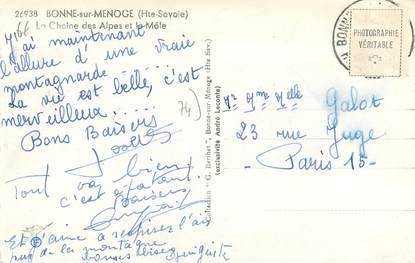 26938 BONNE-sur-MENOGE (Hte-Savoie)
La Chaîne des Alpes et le Môle
J'ai maintenant
l'allure d'une vraie
montagnarde
La vie est belle, c'est
merveilleux.....
Bons Baisers
Tout va bien
c'est épatant
Baisers
Et j'aime à respirer l'air
pur de la montagne
bonnes bises
74)
Collection "G. Berthet", Bonne-sur-Menoge (Hte Sav.)
(exclusivité André Leconte)
Mr Mme Melle Galot
23 rue Juge
Paris 15-
BONNE
PHOTOGRAPHIE
VÉRITABLE